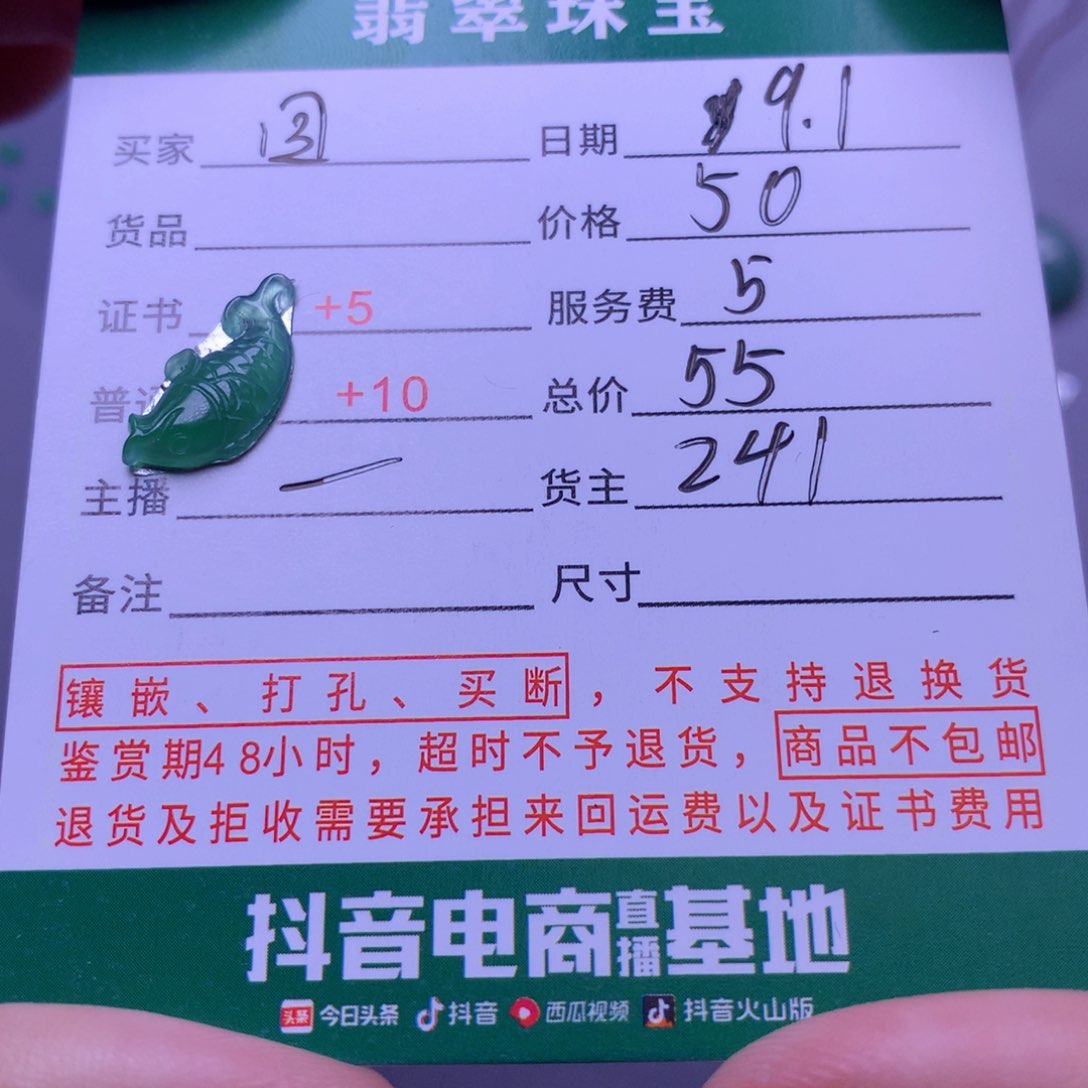 翡翠珠宝
买家 日期 9.1
货品 价格 50
证书 +5 服务费 5
普 +10 总价 55
主播 一 货主 241
备注 尺寸
镶嵌、打孔、买断，不支持退换货
鉴赏期48小时，超时不予退货，商品不包邮
退货及拒收需要承担来回运费以及证书费用
抖音电商直播基地
头条 今日头条 抖音 西瓜视频 抖音火山版